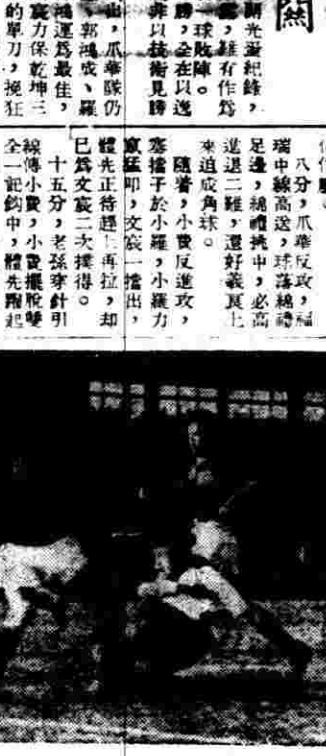 光蛋紀錄,
雖有作爲
一球敗陣。
勝,全在以逸
非以技術見勝
出,爪華隊仍
、郭鴻成、羅
鴻運爲最佳,
宸力保乾坤三
的單刀,挽狂
八分,爪華反攻,福
瑞中線高送,球落綿禮
足邊,綿禮挑中,必高
進退二難,還好義良上
來迫成角球。
隨着,小費反進攻,
塞擋子於小羅,小羅力
竄猛叩,文宸一擋出,
體先正待趕上再拉,却
已爲文宸二次撲得。
十五分,老孫穿針引
線傳小費,小費擺脫雙
全一記鈎中,體先躍起